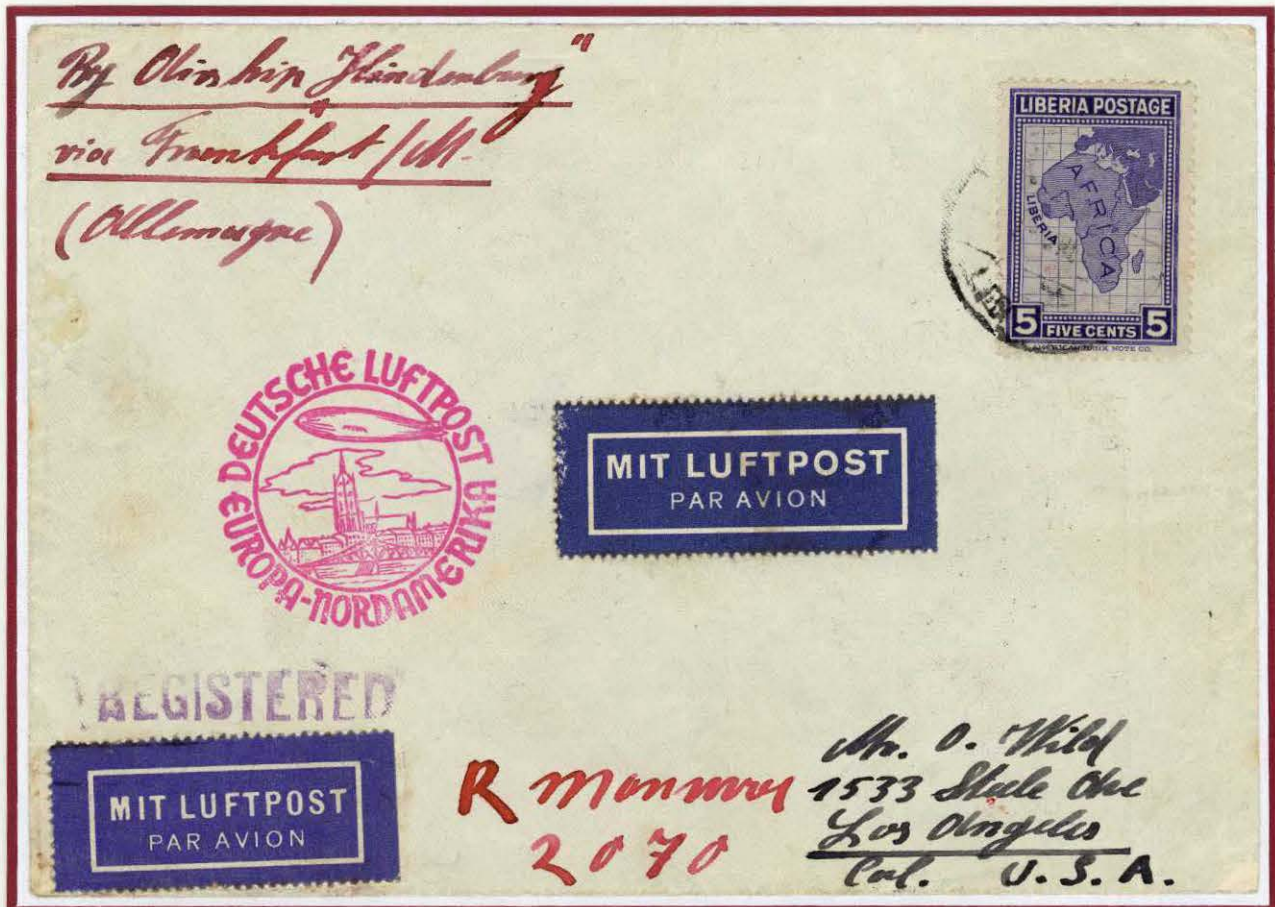 By Airship "Hindenburg"
via Frankfurt/M.
(Allemagne)
LIBERIA POSTAGE
AFRICA
LIBERIA
5 FIVE CENTS 5
AMERICAN BANK NOTE CO.
DEUTSCHE LUFTPOST
EUROPA-NORDAMERIKA
MIT LUFTPOST
PAR AVION
REGISTERED
MIT LUFTPOST
PAR AVION
R Monrovia
2070
Mr. O. Wild
1533 Steele Ave
Los Angeles
Cal. U.S.A.